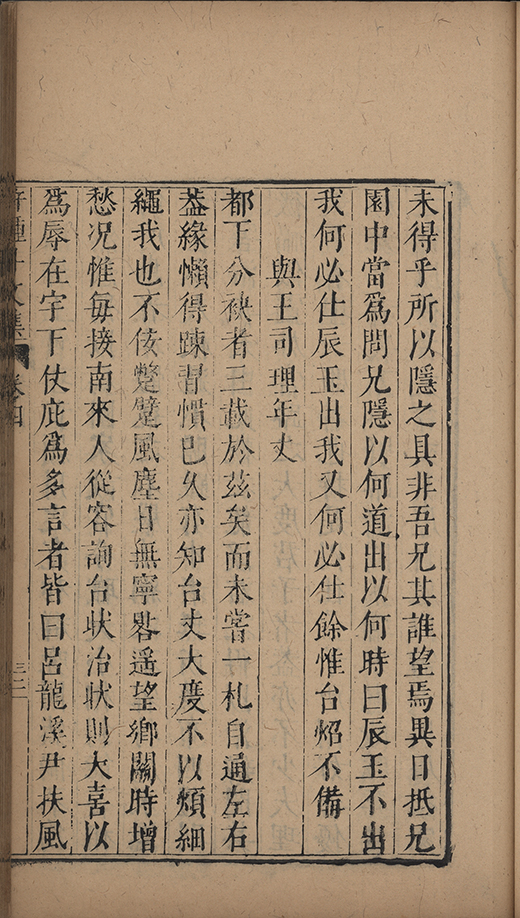 未得乎所以隱之具非吾兄其誰望焉異日抵兄
園中當爲問兄隱以何道出以何時曰辰玉不出
我何必仕辰玉出我又何必仕餘惟台炤不備
與王司理年丈
都下分袂者三載於茲矣而未嘗一札自通左右
葢緣懶得踈習慣巳久亦知台丈大度不以煩細
繩我也不佞蹩躠風塵日無寧晷遥望鄉關時增
愁況惟每接南來人從容詢台狀治狀則大喜以
爲辱在宇下仗庇爲多言者皆曰呂龍溪尹扶風
文集 卷四
三二